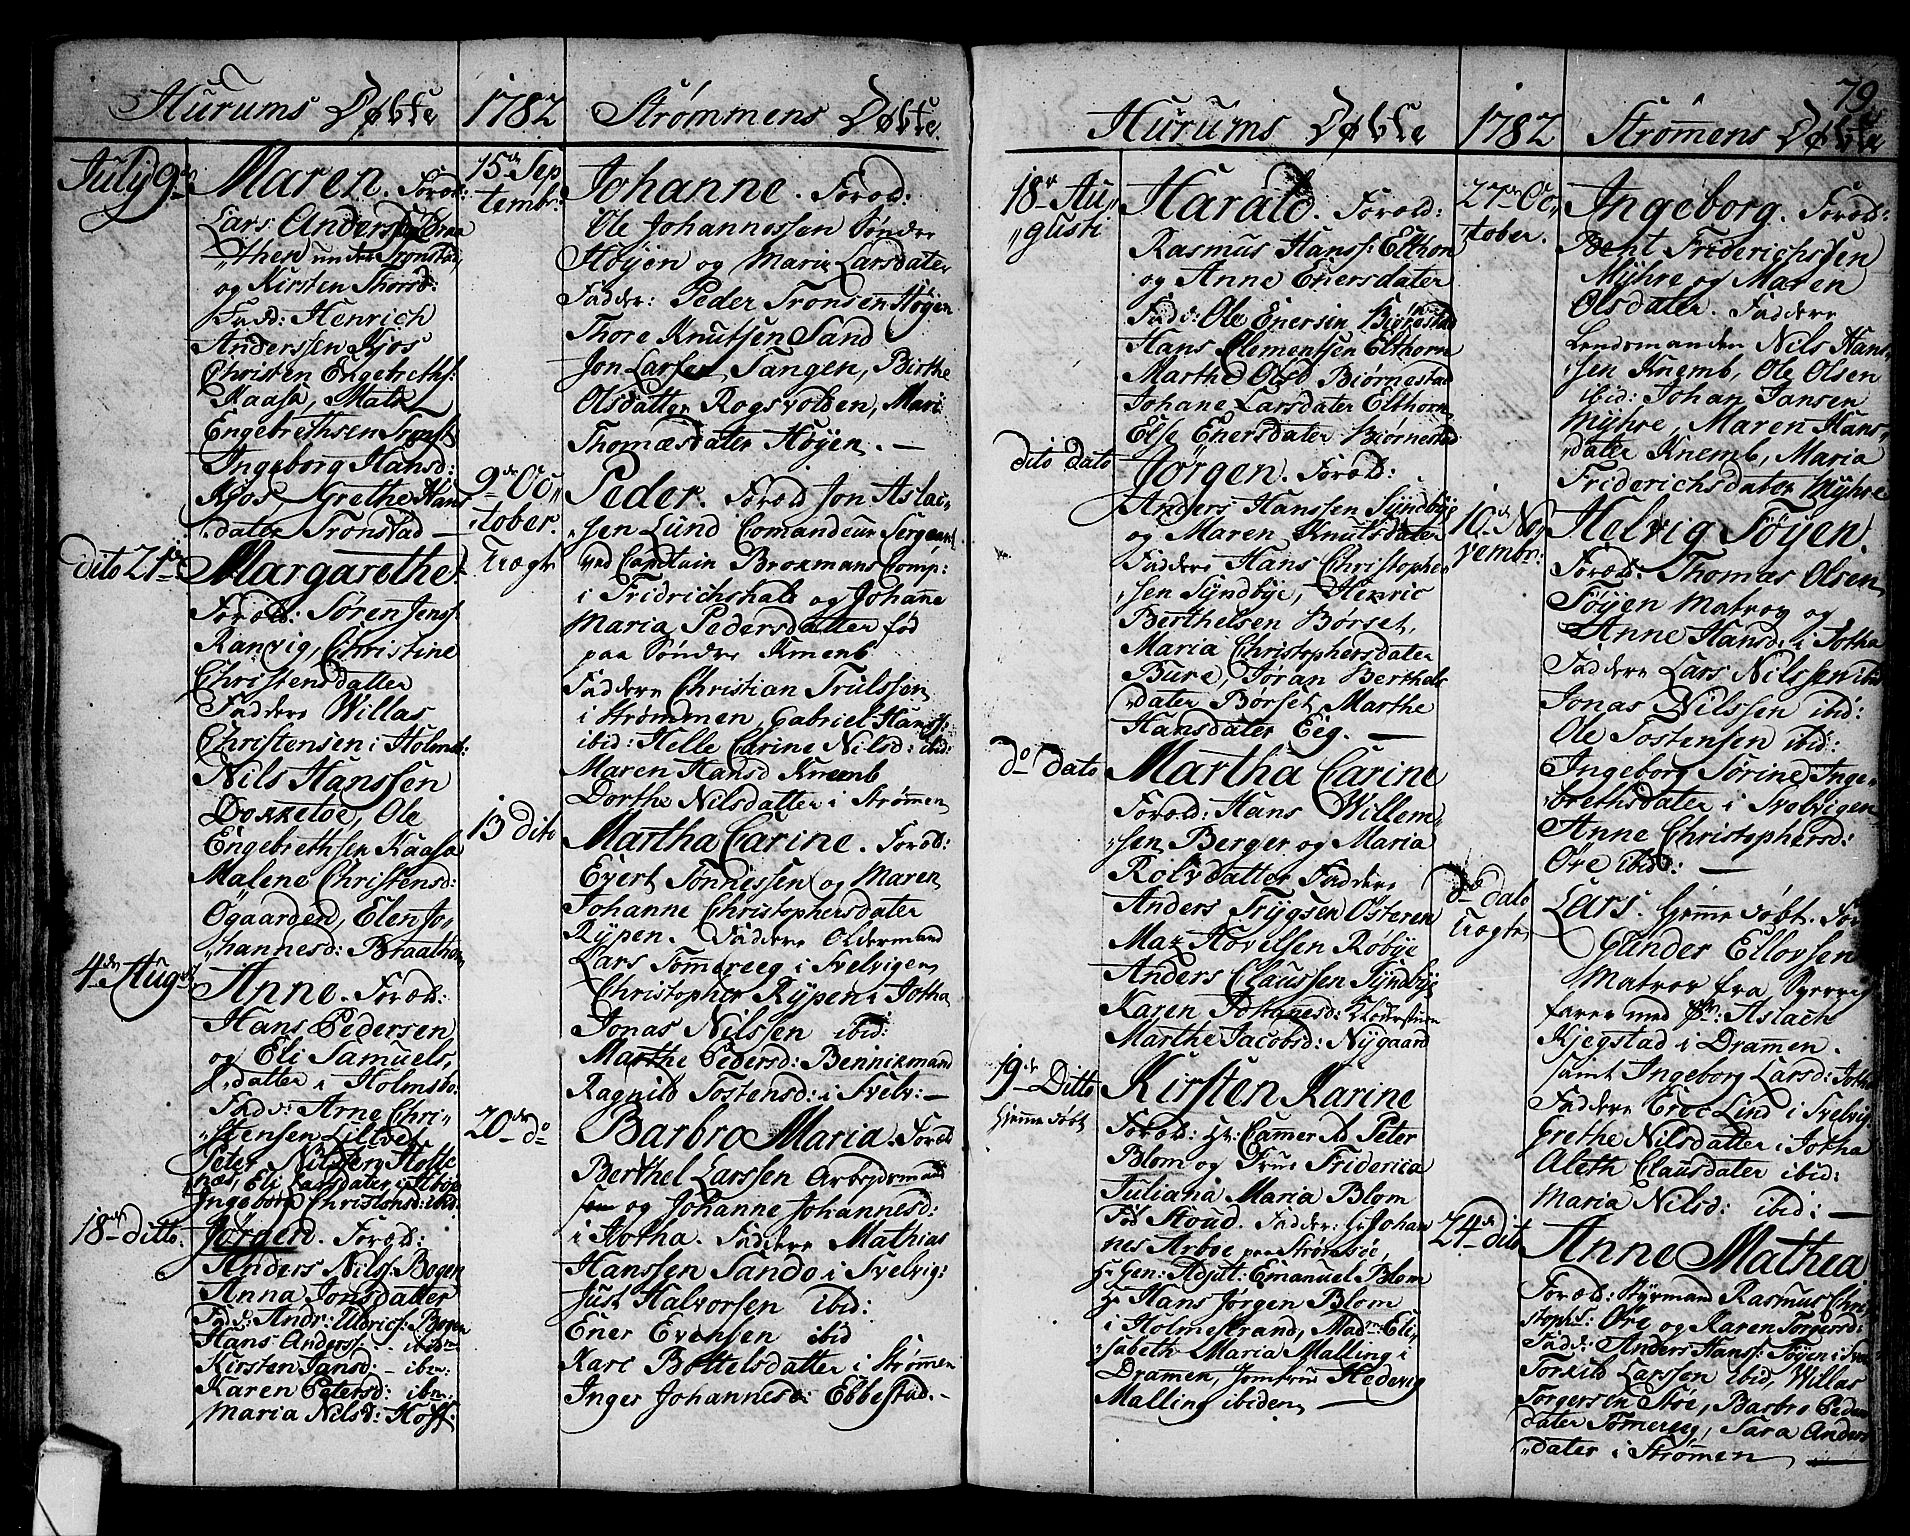 Hurums Døbte
1782
Strømmens Døbte
July 9de
Maren. Foræld:
Lars Anderss: Braa
"then under Tronstad,
og Kirsten Thorsd:
Fad: Henrich
Anderssen Kjos
Christen Engebreths:
Kaasa, Mats
Engebrethsen
Ingeborg Hansd:
Kjos, Grethe Hans
"dater Tronstad —
dito 21de
Margarethe.
Foræld: Søren Jenss:
Ranvig, Christine
Christensdatter
Faddere Willas
Christensen i Holmsb:
Nils Hanssen
Dokketoe, Ole
Engebrethsen Kaasa
Malene Christensd:
Øgaarden, Elen Jo,
"hannesd: Braathen
4de Aug:
Anne. Foræld:
Hans Pedersen
og Eli Samuels,
"datter i Holmsbo:
Fadd: Arne Chri"
"stensen
Peter Nilssen Holte
Eli Larsdater
Ingeborg Christensd: ibid:
18de ditto.
Jørgen. Foræld:
Anders Nilss: Bogen
Anna Jonsdatter
Fad: Andr: Uldrics: Bogen
Hans Anderss: — ibid:
Kirsten Jansd: — ibm:
Karen Petersd: ibm:
Maria Nilsd: Hoff.
15de Sep
tembr:
Johanne. Foræld:
Ole Johannessen Søndre
Høyen og Maria Larsdater
Fadder: Peder Tronsen Høyen
Thore Knutsen Sand
Jon Larsen Tangen, Birthe
Olsdatter Rogsvolden, Mari
Thomæsdater Høyen. —
9de Oc"
"tober.
Uægte
Peder. Foræld Jon Aslac"
"sen Lund Comandeur Sergeant
ved Captain Brokmans Comp:
i Fridrichshald og Johanne
Maria Pedersdatter fød
paa Søndre Knemb
Faddere Christian Trulssen
i Strømmen, Gabriel Hanss:
ibid: Helle Carine Nilsd: ibid:
Maren Hansd Knemb
Dorthe Nilsdatter i Strømen
13 dito
Martha Carine. Foræld:
Evert Tønnessen og Maren
Johanne Christophersdater
Rypen. Faddere Oldermand
Lars Tømereeg i Svelvigen
Christopher Rypen i Jotha
Jonas Nilssen ibid:
Marthe Pedersd: Bennikmand
Ragnild Tostensd: i Svelv: —
20de do
Barbro Maria. Foræld
Berthel Larssen Arbejdsmand
og Johanne Johannesd:
i Jotha. Faddere Mathias
Hanssen Sando i Svelvig:
Just Halvorsen ibid:
Ener Evensen ibid
Kari Bottelsdatter i Strømmen
Inger Johannesd: Ebbestad. —
79
Hurums Døbte
1782
Strømens Døbte
18de Au"
"gusti
Harald. Foræld:
Rasmus Hanss: Elthorn
og Anne Enersdater
Fadd: Ole Enersen Biørnestad
Hans Clementsen Elthorn
Marthe Olsd Biørnestad
Johane Larsdater Elthorn
Else Enersdater Biørnestad
dito dato
Jørgen. Foræld:
Anders Hanssen Syndbye
og Maren Knutsdater
Faddere Hans Christopher
"sen Syndbye, Henric
Berthelsen Børset,
Maria Christophersdater
Bure, Jøran Berthels
"dater Børset, Marthe
Hansdater Eig. —
do dato
Martha Carine
Foræld: Hans Willem"
"sen Berger og Maria
Rolvdatter Faddere
Anders Trygsen Østeren
Maz Hovelsen Røbye
Anders Claussen Syndbye
Karen Johanesd:
Marthe Jacobsd: Nygaard
19de Ditto
hjemedøbt
Kirsten Karine
Foræld: Hr: Camer Rd Peter
Blom og Frue Fridericia
Juliana Maria Blom
Fød Stoud. Fadder: Hr Johan
nes Arboe paa Strømsøe,
Hr Gen: Adjut: Emanuel Blom
Hr Hans Jørgen Blom
i Holmestrand, Madme Eli"
"sabeth Maria Malling i
Dramen, Jomfrue Hedevig
Malling ibidem —
27de Oc"
"tober.
Ingeborg. Foræld:
Bent Friderichssen
Myhre og Maren
Olsdater. Faddere
Lendsmanden Nils Hans
"sen Knemb, Ole Olsen
ibid: Johan Jansen
Myhre, Maren Hans"
"dater Knemb, Maria
Friderichsdater Myhre
10de No"
"vembr:
Helvig Tøyen.
Foræld: Thomas Olsen
Tøyen Matros og
Anne Hansd: i Jotha
Faddere Lars Nilssen ibid
Jonas Nilssen ibid:
Ole Tostensen ibid:
Ingeborg Sørine Inge"
"brethsdater i Svelvigen
Anne Christophersd:
Øre ibid: —
do dato
Uægte
Lars. hjemedøbt. For
Gunder Ellovsen
Matros fra
farer med Hr: Aslach
Kjegstad i Dramen.
samt Ingeborg Larsd: Jotha
Faddere Eric Lind i Svelvig
Grethe Nilsdatter i Jotha
Aleth Clausdater ibid:
Maria Nilsd: ibid: —
24de dito
Anne Mathea
Foræld: Styrmand Rasmus Chri
stophs: Øre og Karen Torgersd:
Fadd: Anders Hanss: Tøyen i Svel
Torkild Larssen ibid, Willas
Torgersen Støe, Barbro Peders
dater Tømereg, Sara Anders
"dater i Strømen —